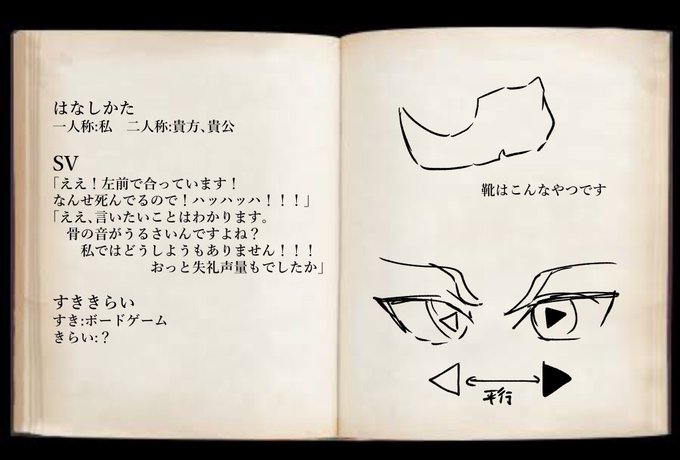 はなしかた
一人称:私　二人称:貴方、貴公
SV
「ええ！左前で合っています！
なんせ死んでるので！ハッハッハ！！！」
「ええ、言いたいことはわかります。
骨の音がうるさいんですよね？
私ではどうしようもありません！！！
おっと失礼声量もでしたか」
すききらい
すき:ボードゲーム
きらい:？
靴はこんなやつです
平行